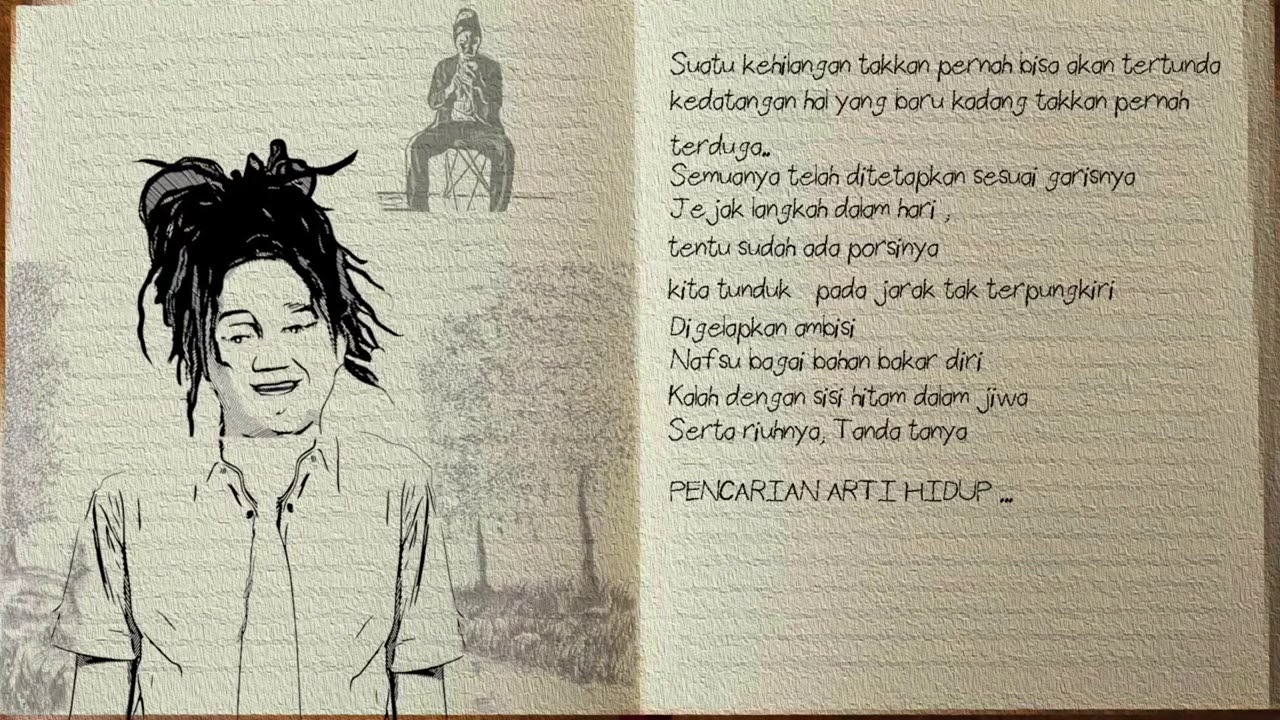 Suatu kehilangan takkan pernah bisa akan tertunda
kedatangan hal yang baru kadang takkan pernah
terduga..
Semuanya telah ditetapkan sesuai garisnya
Jejak langkah dalam hari ,
tentu sudah ada porsinya
kita tunduk pada jarak tak terpungkiri
Digelapkan ambisi
Nafsu bagai bahan bakar diri
Kalah dengan sisi hitam dalam jiwa
Serta riuhnya, Tanda tanya
PENCARIAN ARTI HIDUP ...